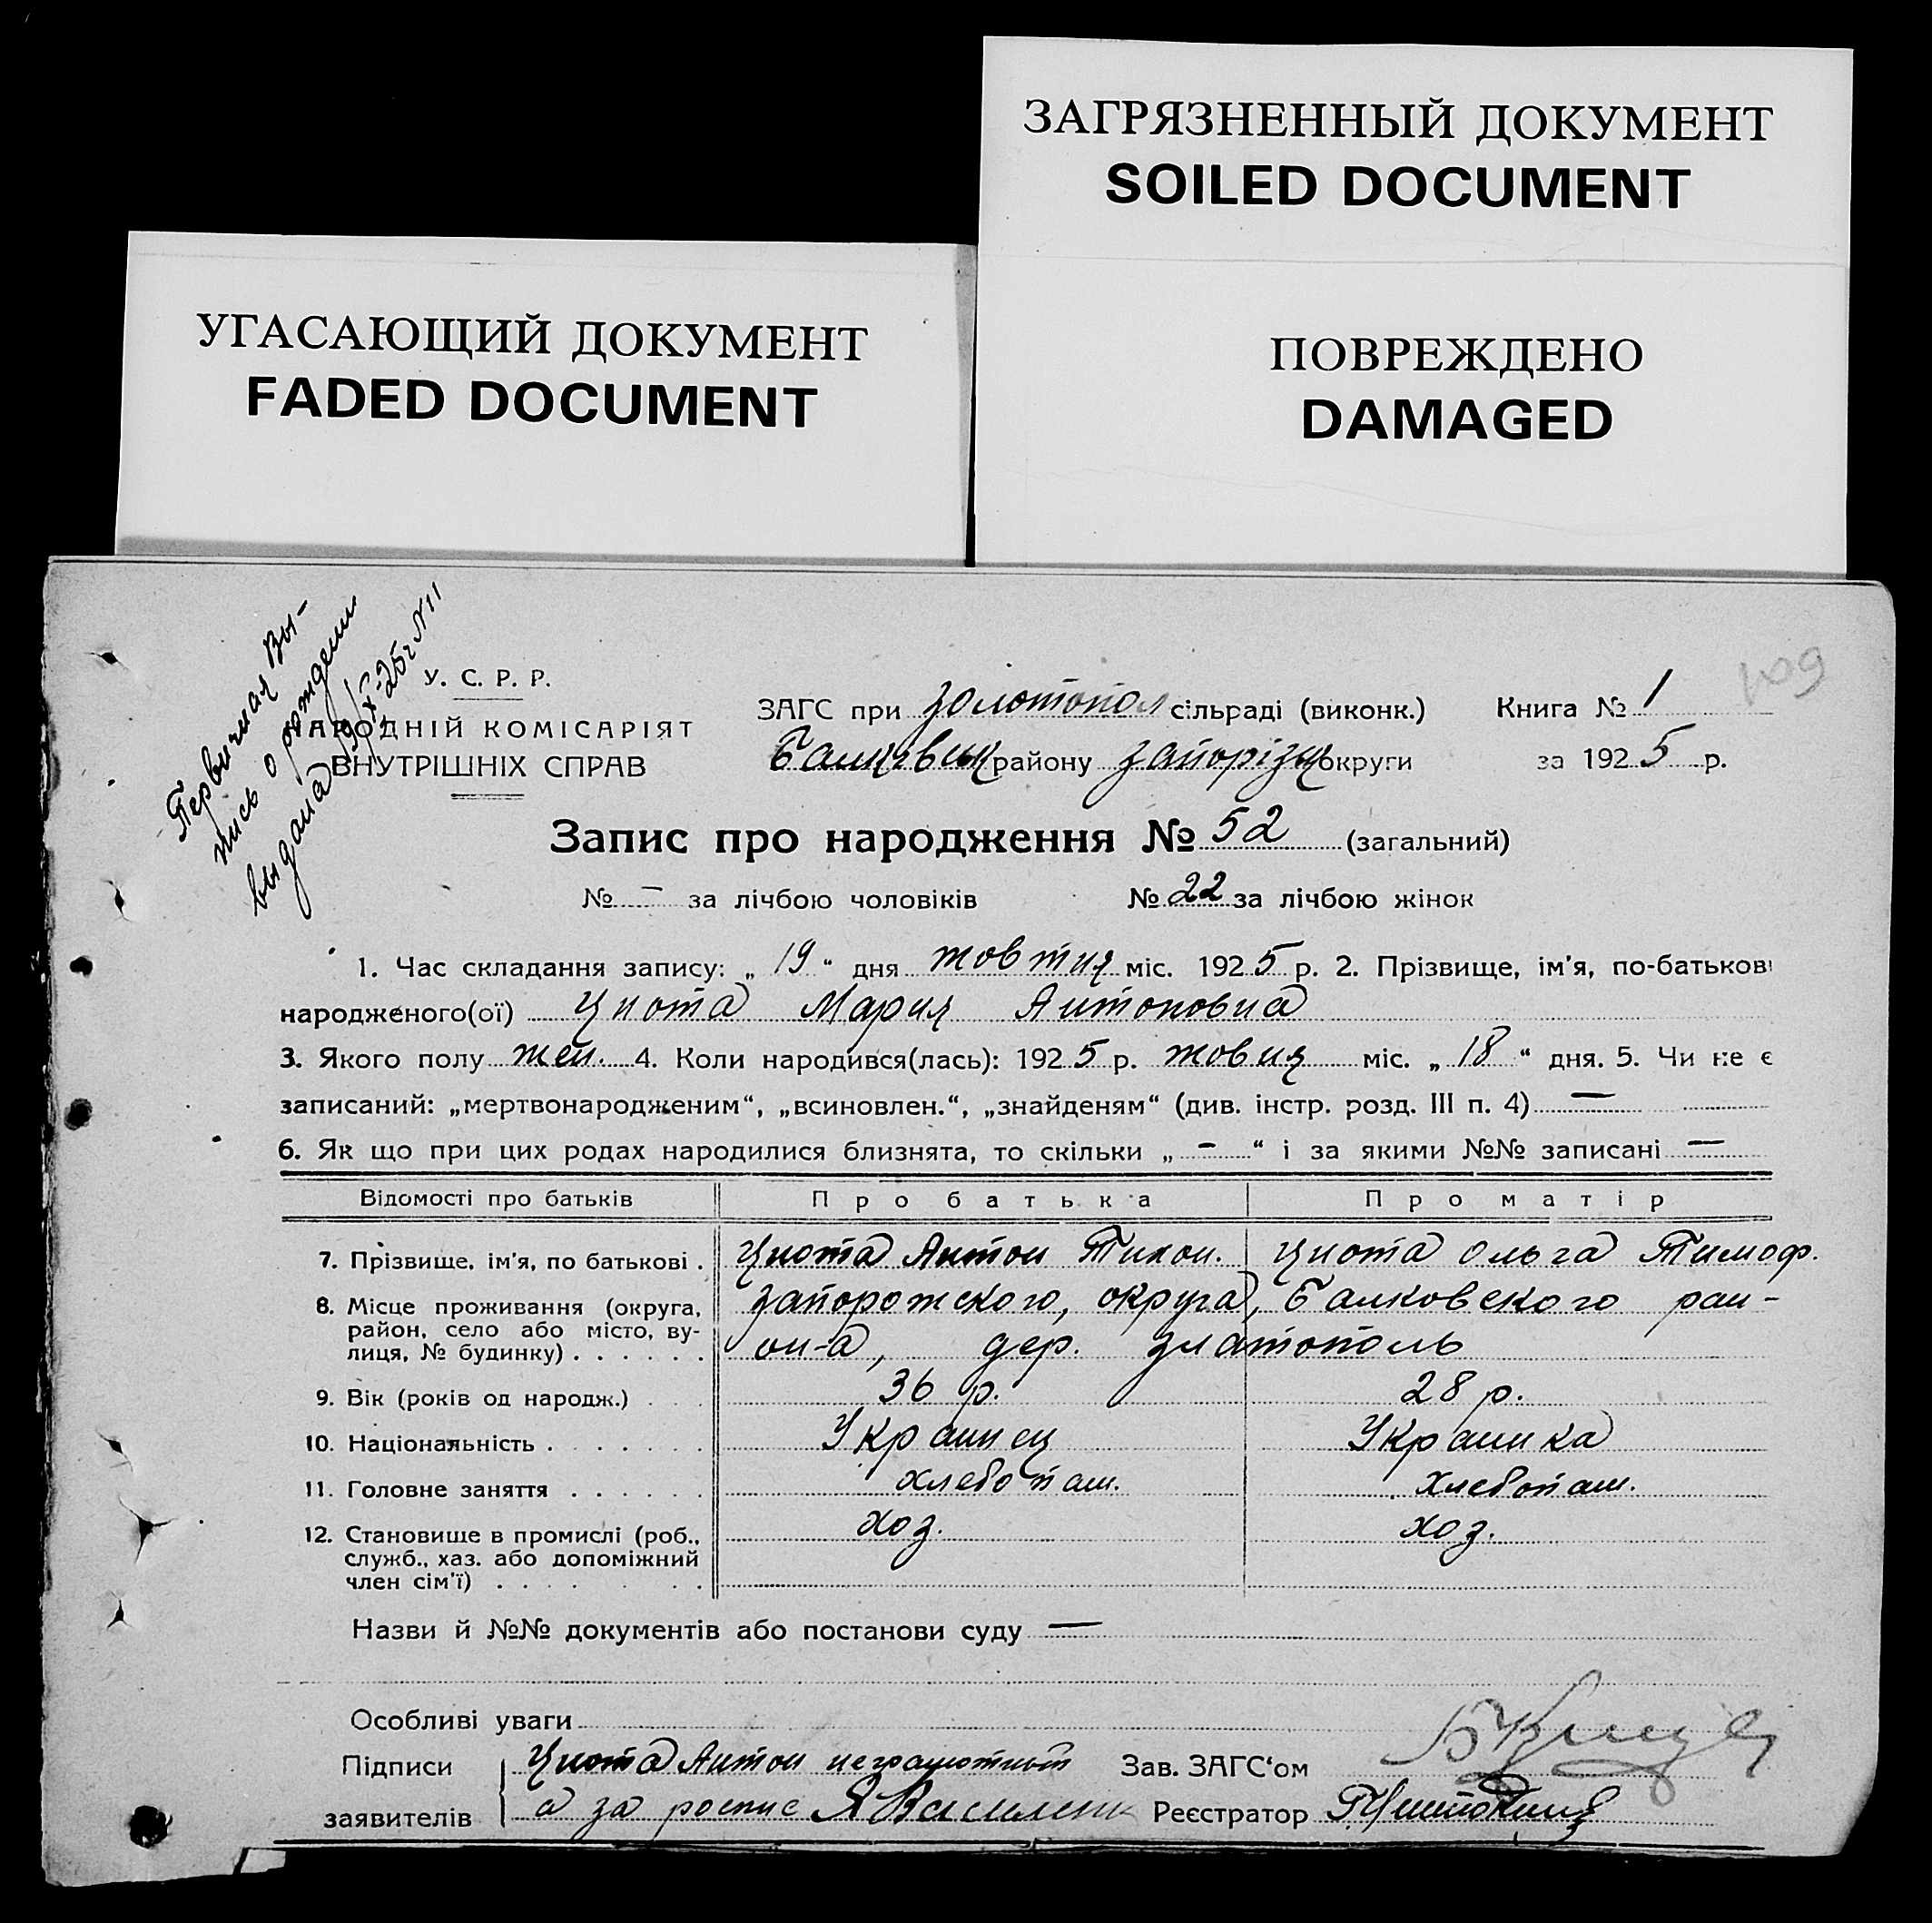 ЗАГРЯЗНЕННЫЙ ДОКУМЕНТ
SOILED DOCUMENT
УГАСАЮЩИЙ ДОКУМЕНТ
FADED DOCUMENT
ПОВРЕЖДЕНО
DAMAGED
109
Первичная вы-
пись о рождении
выдана 19/X-25г N11
У. С. Р. Р.
НАРОДНІЙ КОМІСАРІЯТ
ВНУТРІШНІХ СПРАВ
ЗАГС при Золотопол сільраді (виконк.) Книга № 1
Балківськ району Запорізьк округи за 1925 р.
Запис про народження № 52 (загальний)
№ – за лічбою чоловіків № 22 за лічбою жінок
1. Час складання запису: „ 19 “ дня жовтня міс. 1925 р. 2. Прізвище, ім'я, по-батькові
народженого(ої) Цнота Мария Антоновна
3. Якого полу жен. 4. Коли народився(лась): 1925 р. жовня міс. „ 18 “ дня. 5. Чи не є
записаний: „мертвонародженим“, „всиновлен.“, „знайденям“ (див. інстр. розд. III п. 4) —
6. Як що при цих родах народилися близнята, то скільки „ – “ і за якими №№ записані —
Відомості про батьків Про батька Про матір
7. Прізвище, ім'я, по батькові . Цнота Антон Тихон. Цнота Ольга Тимоф.
8. Місце проживання (округа, Запорожского, округа, Балковского рай-
район, село або місто, ву-
лиця, № будинку) . . . . . . он-а, дер. Златополь
9. Вік (років од народж.) . . . 36 р. 28 р.
10. Національність . . . . . . . Украинец Украинка
11. Головне заняття . . . . . . хлебопаш. хлебопаш.
12. Становище в промислі (роб., хоз. хоз.
служб., хаз. або допоміжний
член сім'ї) . . . . . . . .
Назви й №№ документів або постанови суду —
Особливі уваги
Підписи Цнота Антон неграмотный Зав. ЗАГС‘ом
заявителів а за роспис Я Василенк Реєстратор